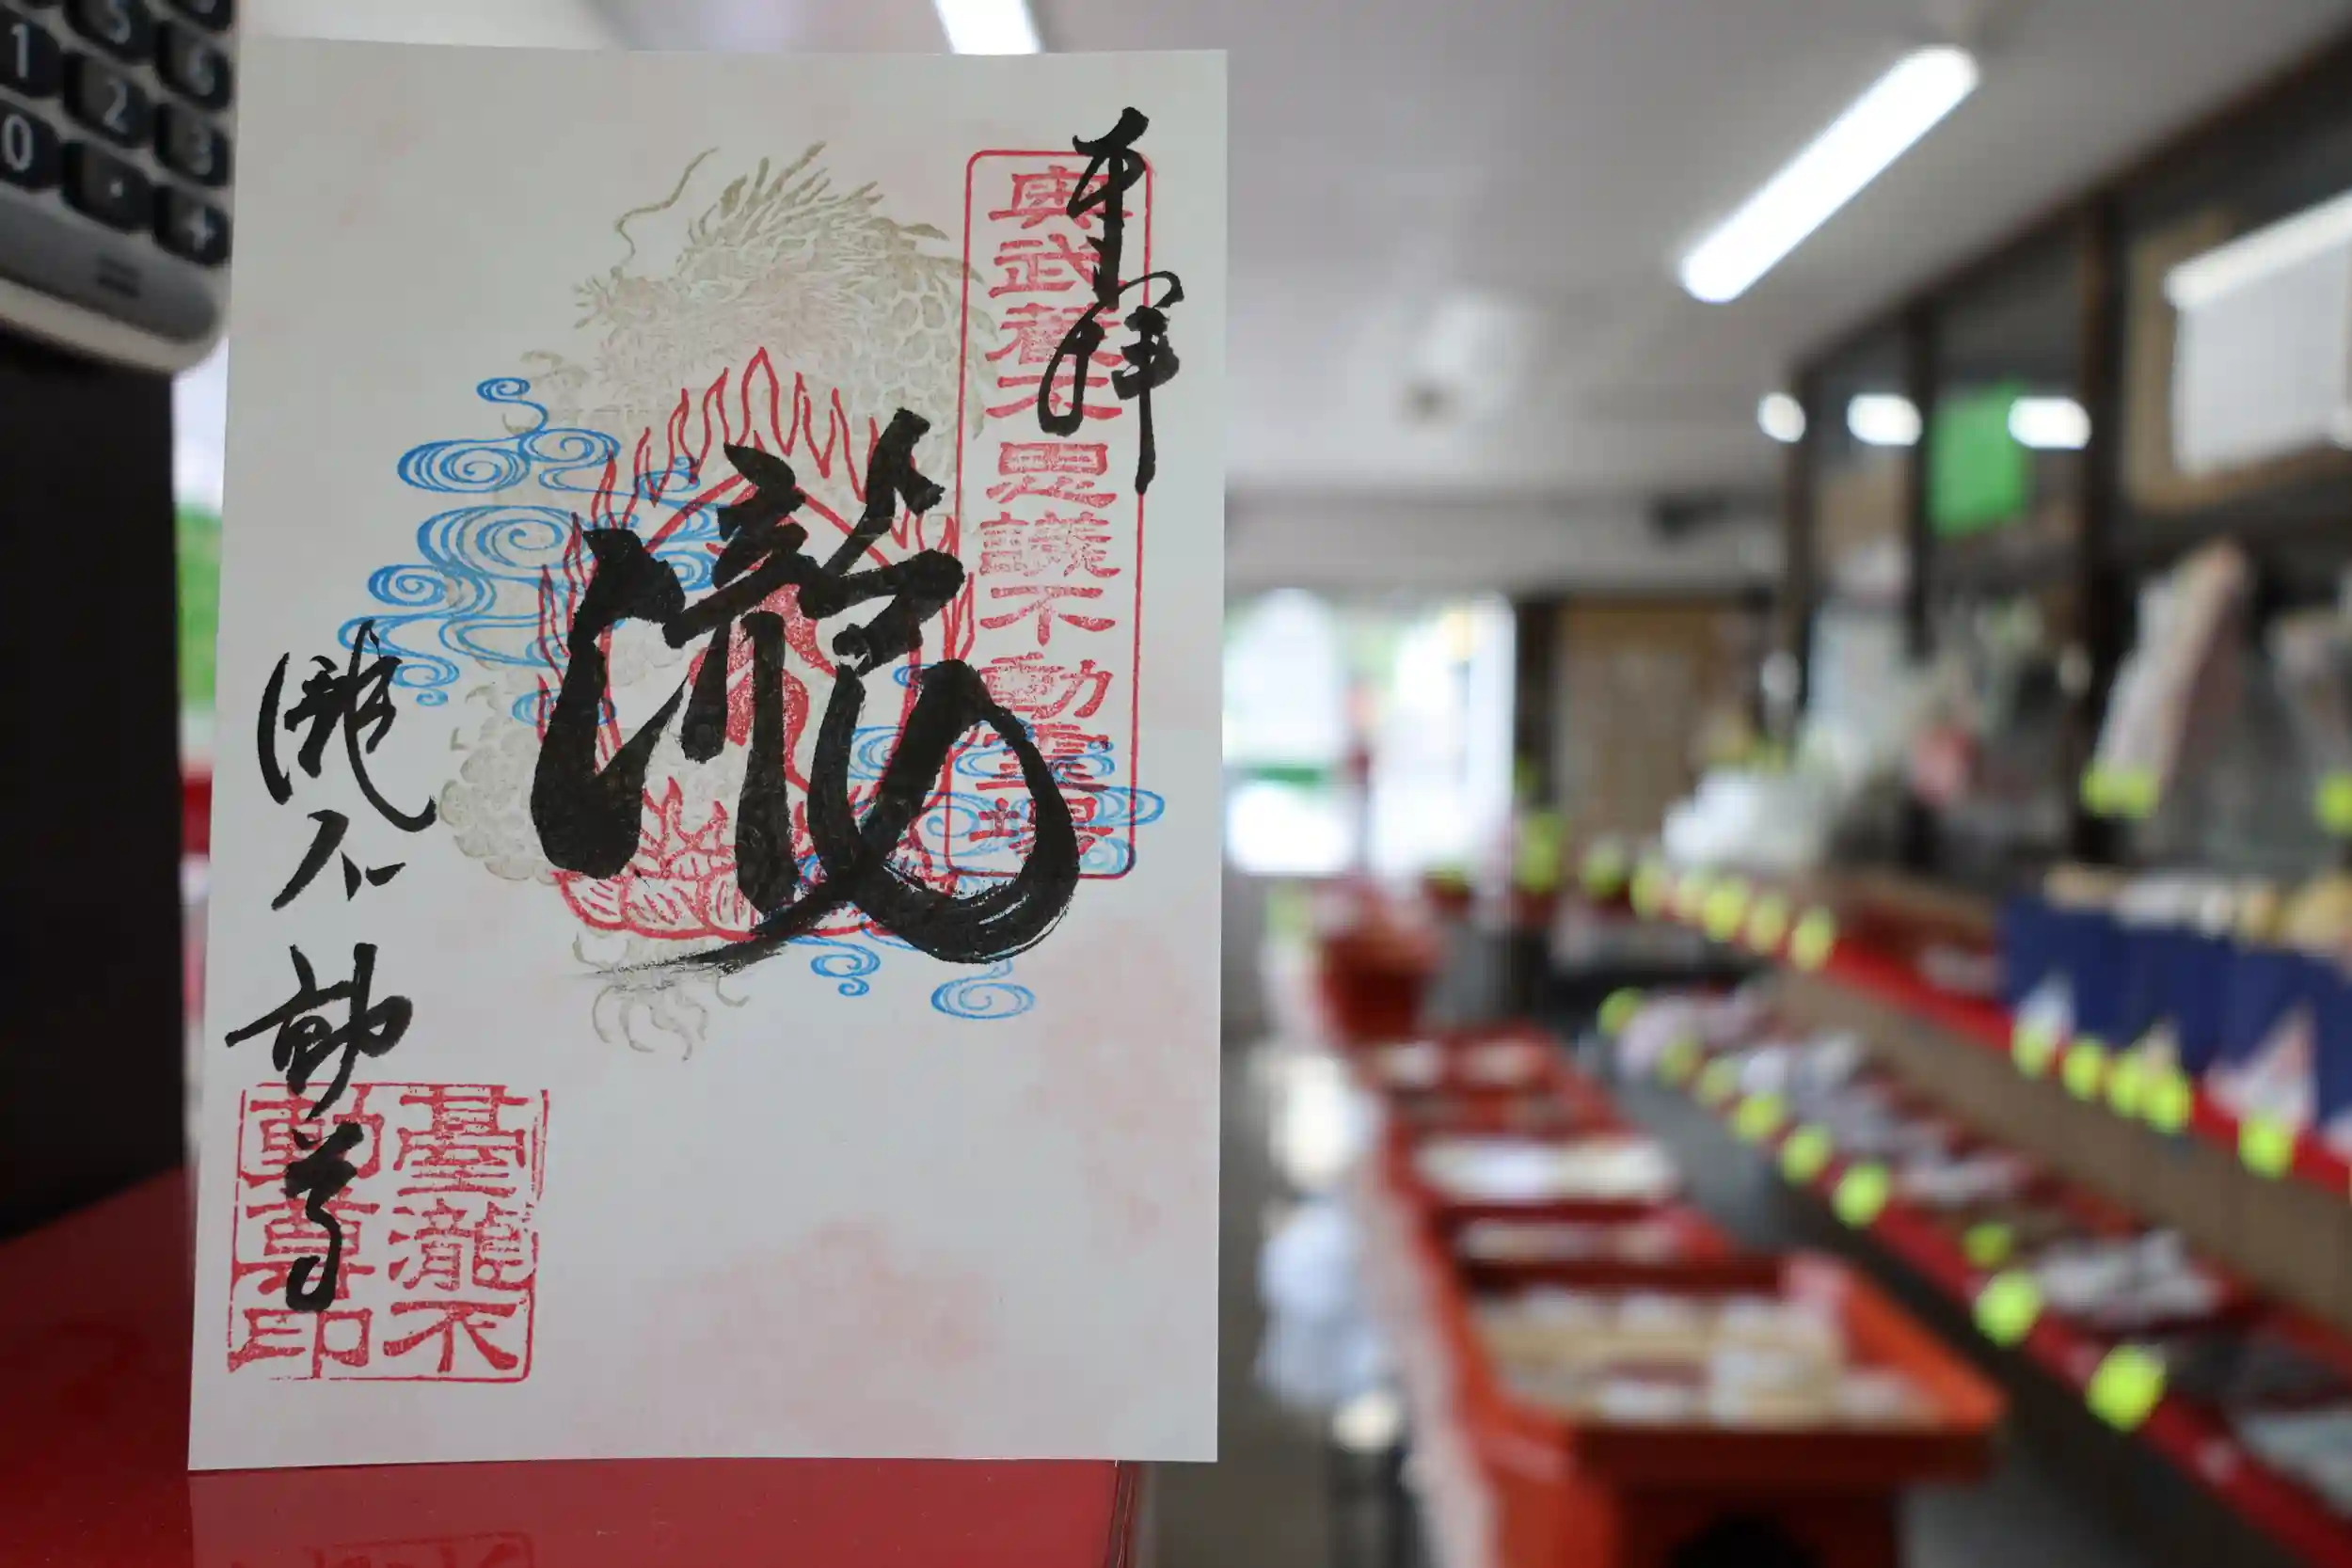 奉拝
奥武蔵不思議不動霊場
瀧
瀧不動尊
臺瀧不
動尊印
5 6
1 2 3
0 . +
=